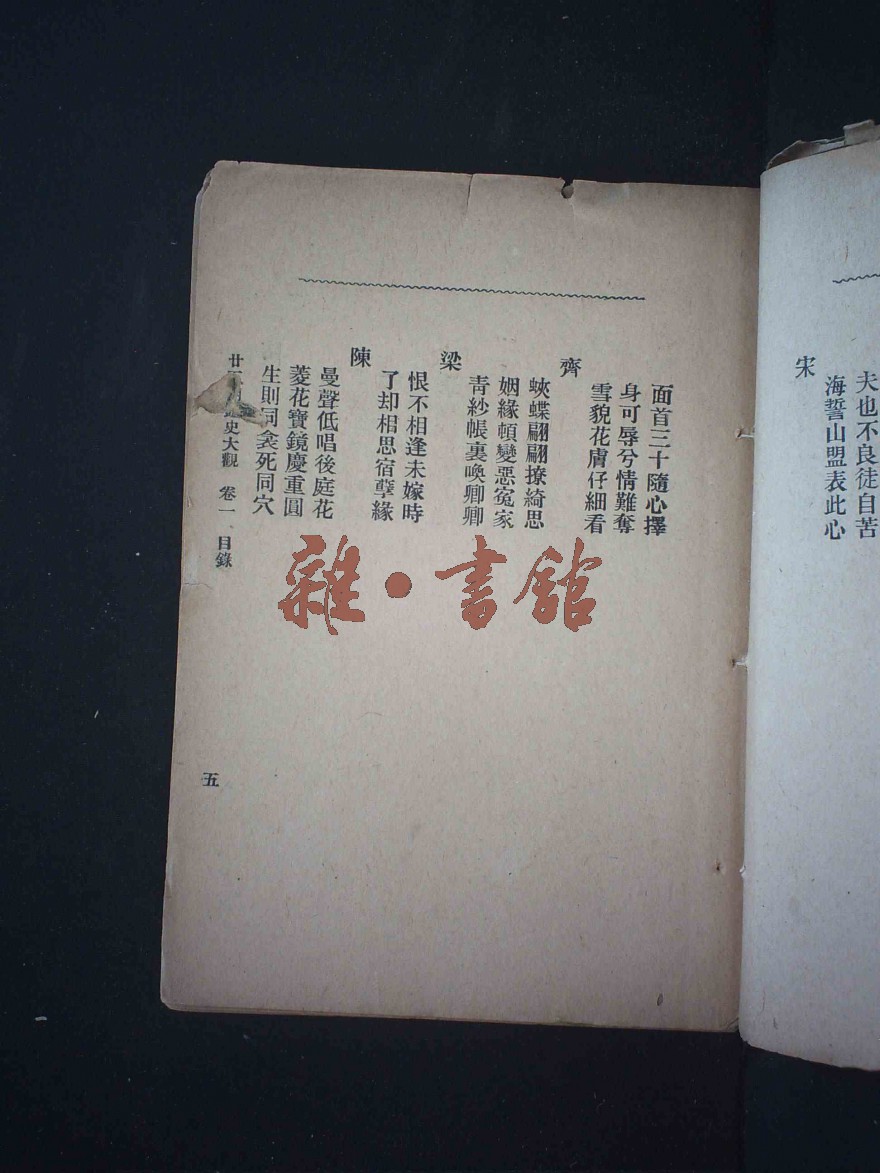 夫也不良徒自苦
海誓山盟表此心
宋
面首三十隨心擇
身可辱兮情難奪
雪貌花膚仔細看
齊
蛺蝶翩翩撩綺思
姻緣頓變惡冤家
靑紗帳裏喚卿卿
梁
恨不相逢未嫁時
了却相思宿孽緣
陳
曼聲低唱後庭花
菱花寶鏡慶重圓
生則同衾死同穴
廿 史大觀 卷一 目錄
五
雜·書館